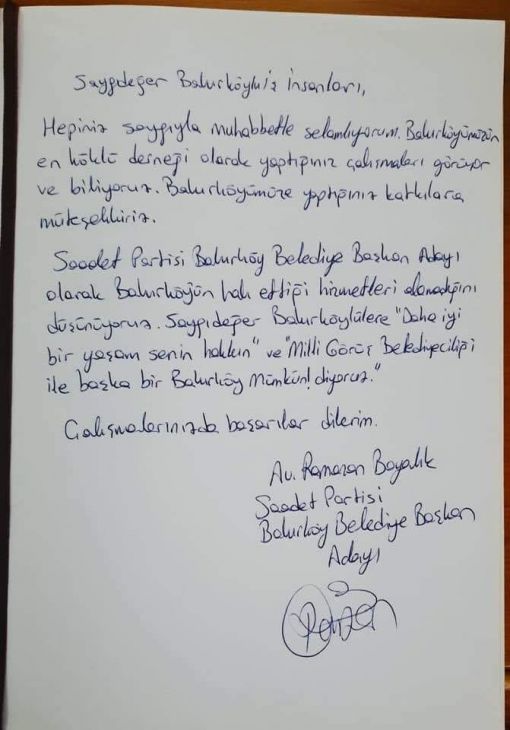 Saygıdeğer Bakırköylü İnsanları,
Hepiniz saygıyla muhabbetle selamlıyorum. Bakırköyümüzün
en köklü derneği olarak yaptığınız çalışmaları görüyor
ve biliyoruz. Bakırköyümüze yaptığınız katkılara
müteşekkiriz.
Saadet Partisi Bakırköy Belediye Başkan Adayı
olarak Bakırköyün hak ettiği hizmetleri alamadığını
düşünüyoruz. Saygıdeğer Bakırköylülere "Daha iyi
bir yaşam senin hakkın" ve "Milli Görüş Belediyeciliği
ile başka bir Bakırköy Mümkün! diyoruz."
Çalışmalarınızda başarılar dilerim.
Av. Ramazan Bayalık
Saadet Partisi
Bakırköy Belediye Başkan
Adayı